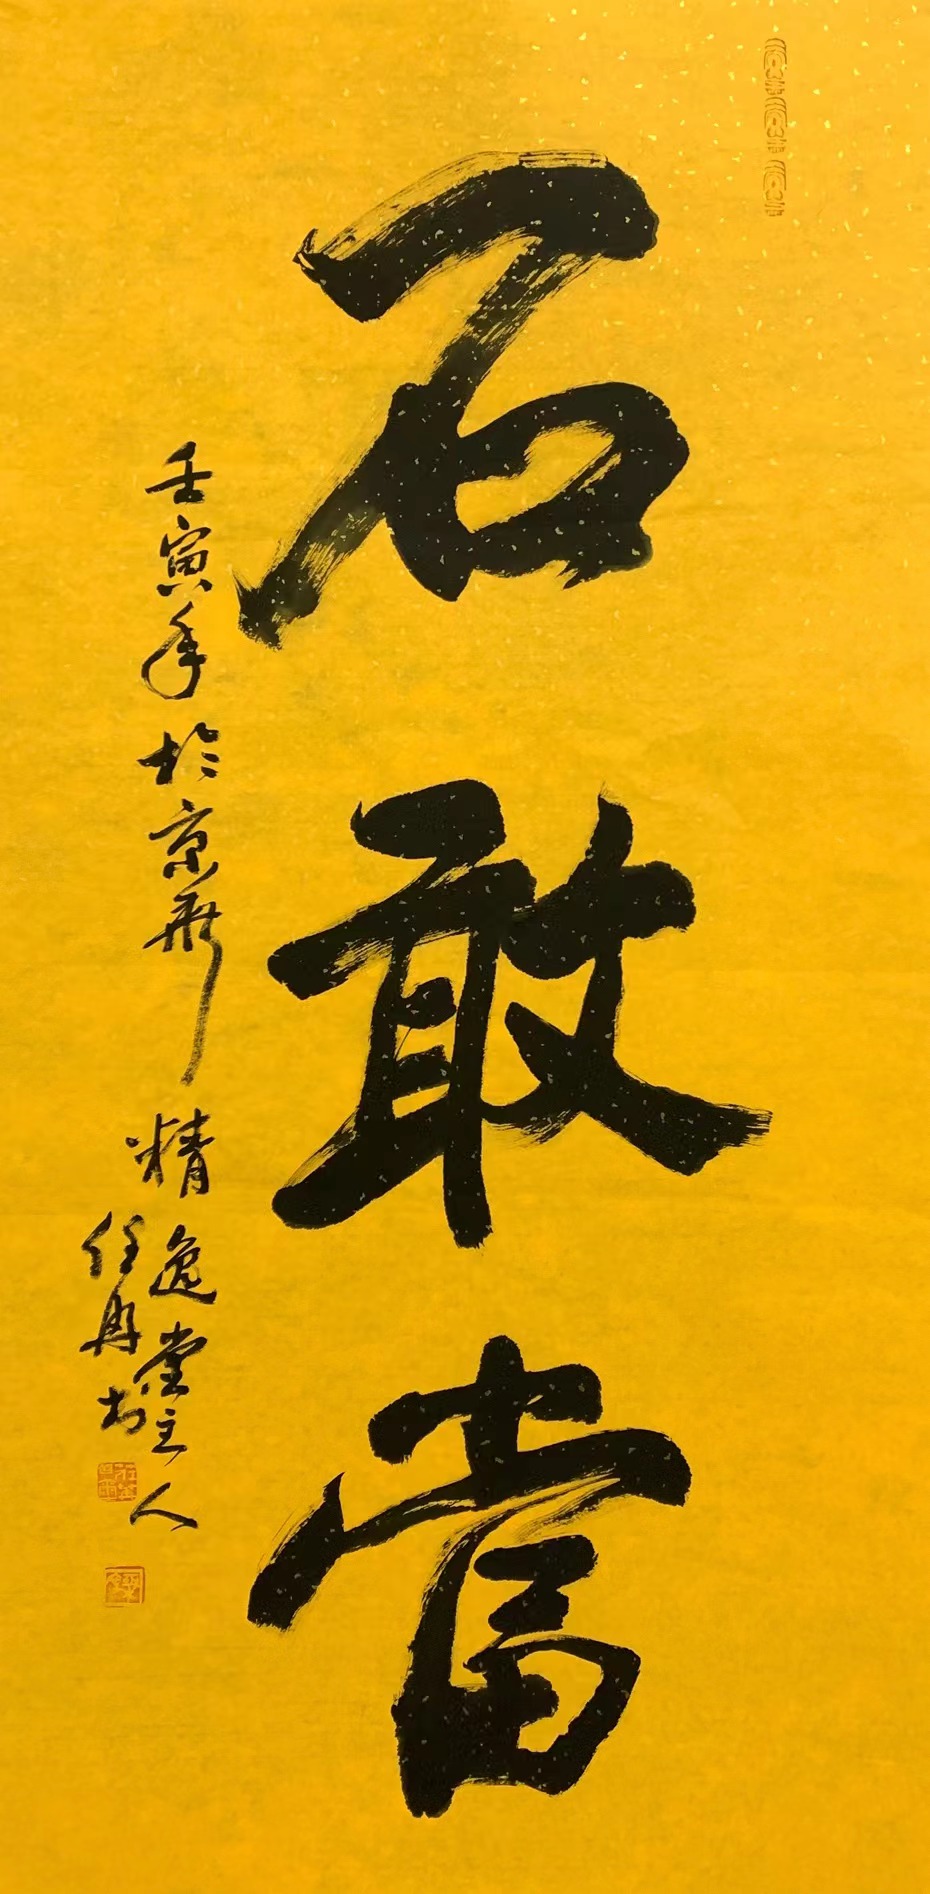 石敢當
壬寅年於京華精逸堂主人
任冉书